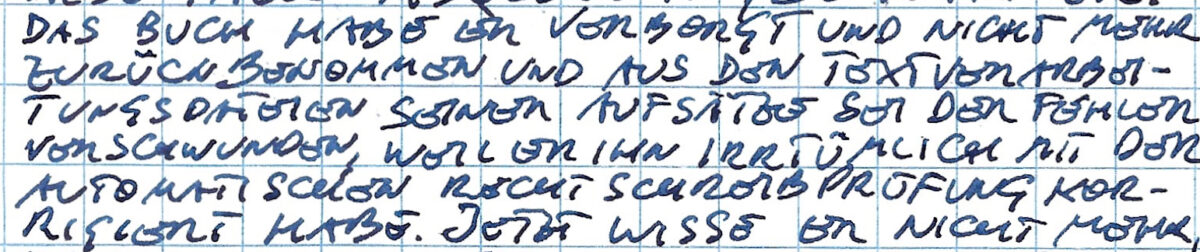 DAS BUCH HABE ER VERBORGT UND NICHT MEHR
ZURÜCKBEKOMMEN UND AUS DEN TEXTVERARBEI-
TUNGSDATEIEN SEINER AUFSÄTZE SEI DER FEHLER
VERSCHWUNDEN, WEIL ER IHN IRRTÜMLICH MIT DER
AUTOMATISCHEN RECHTSCHREIBPRÜFUNG KOR-
RIGIERT HABE. JETZT WISSE ER NICHT MEHR,